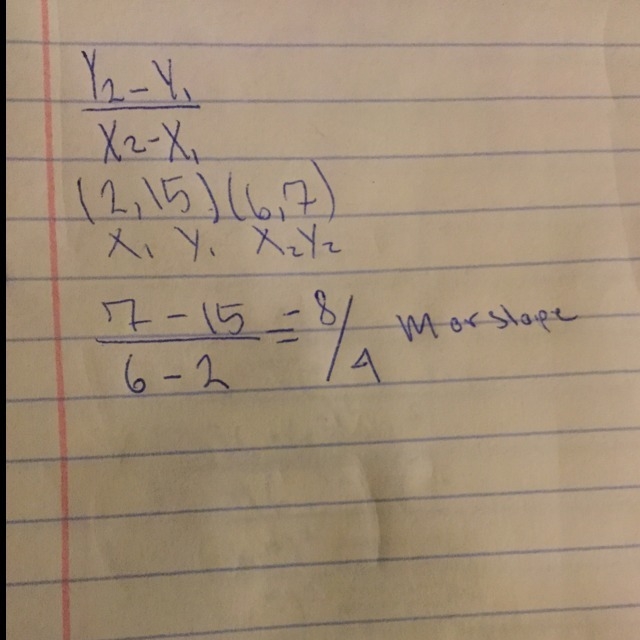 Y2-Y1
X2-X1
(2,15)(6,7)
X1 Y1 X2Y2
7-15 = 8/4 M or slope
6-2